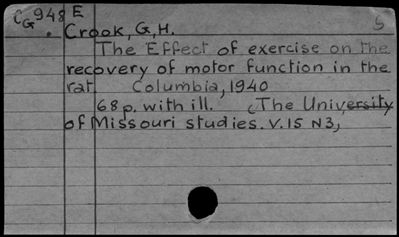 CG948E
S
Crook, G, H.
The Effect of exercise on the
recovery of motor function in the
rat. Columbia, 1940
68 p. with ill. (The University
of Missouri studies. V.15 N3,